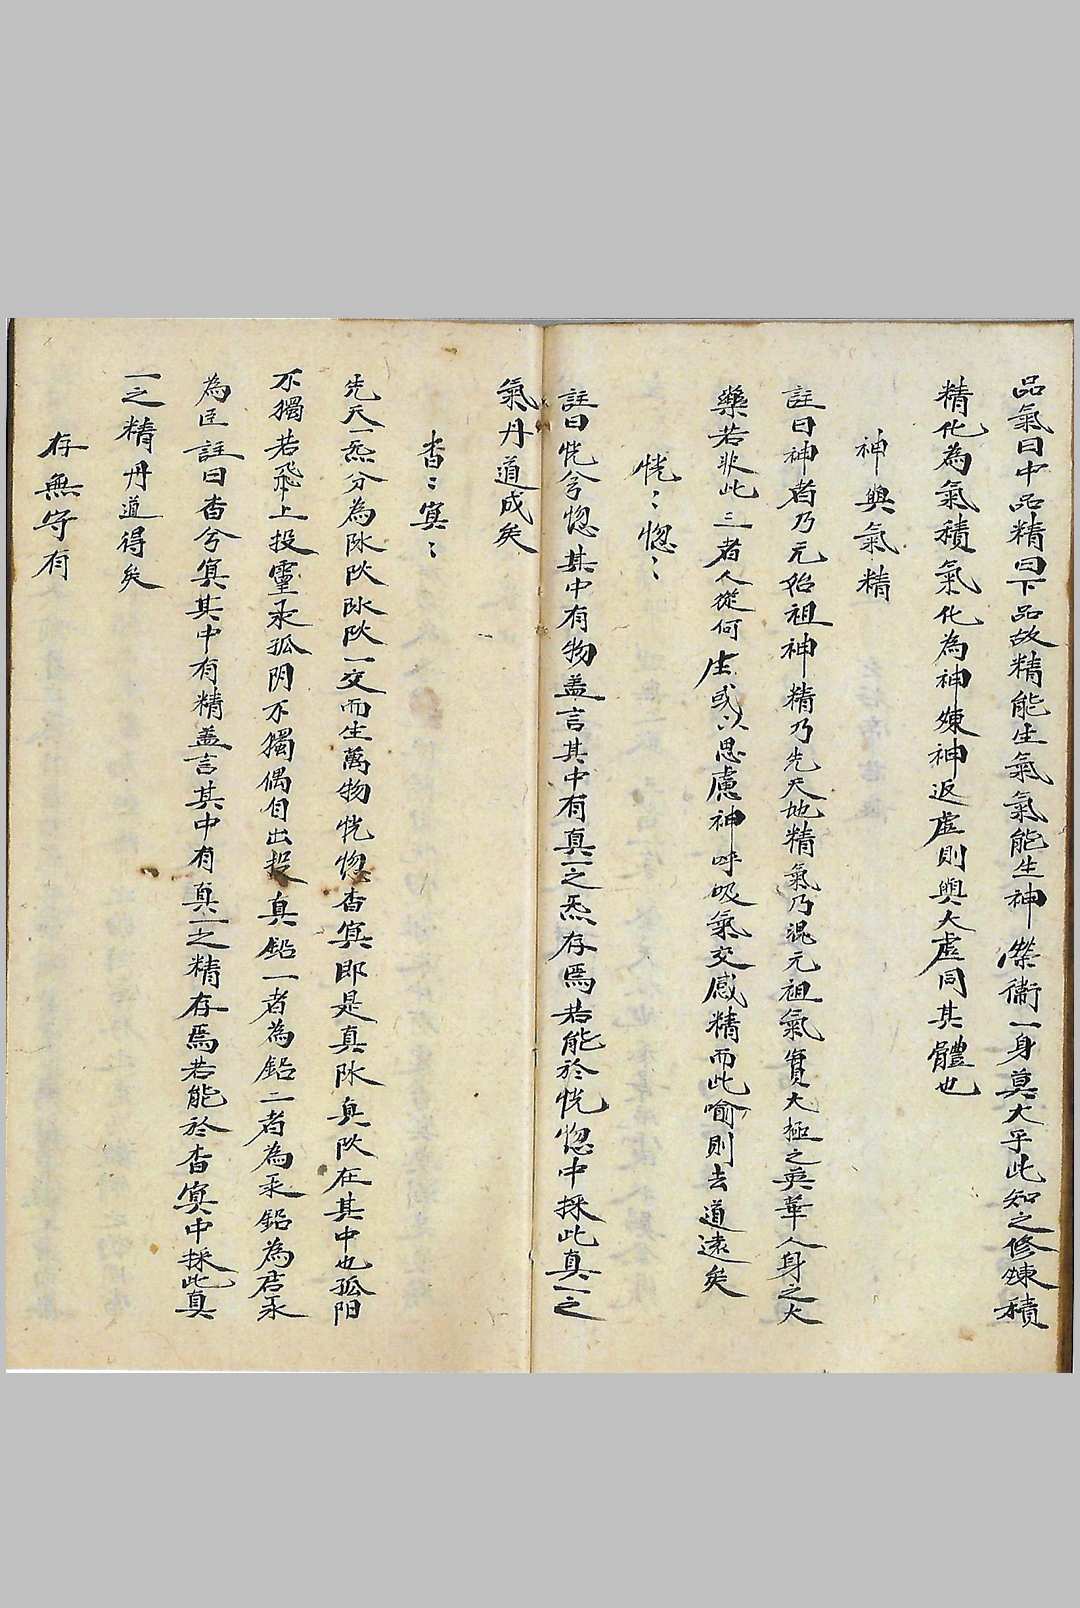 品氣曰中品精曰下品故精能生氣氣能生神榮衛一身莫大乎此知之修煉積
精化為氣積氣化為神煉神返虛則與大虛同其體也
神與氣精
註曰神者乃元始祖神精乃先天地精氣乃混元祖氣實大極之英華人身之大
藥若非此三者人從何生或以思慮神呼吸氣交感精而此喻則去道遠矣
恍〻惚〻
註曰恍兮惚其中有物盖言其中有真一之炁存焉若能於恍惚中採此真一之
氣丹道成矣
杳〻冥〻
先天一炁分為陰陽陰陽一交而生萬物恍惚杳冥即是真陰真陽在其中也孤陽
不獨若飛上投靈汞孤阴不獨偶自出投真鉛一者為鉛二者為汞鉛為君汞
為臣註曰杳兮冥其中有精盖言其中有真一之精存焉若能於杳冥中採此真
一之精丹道得矣
存無守有